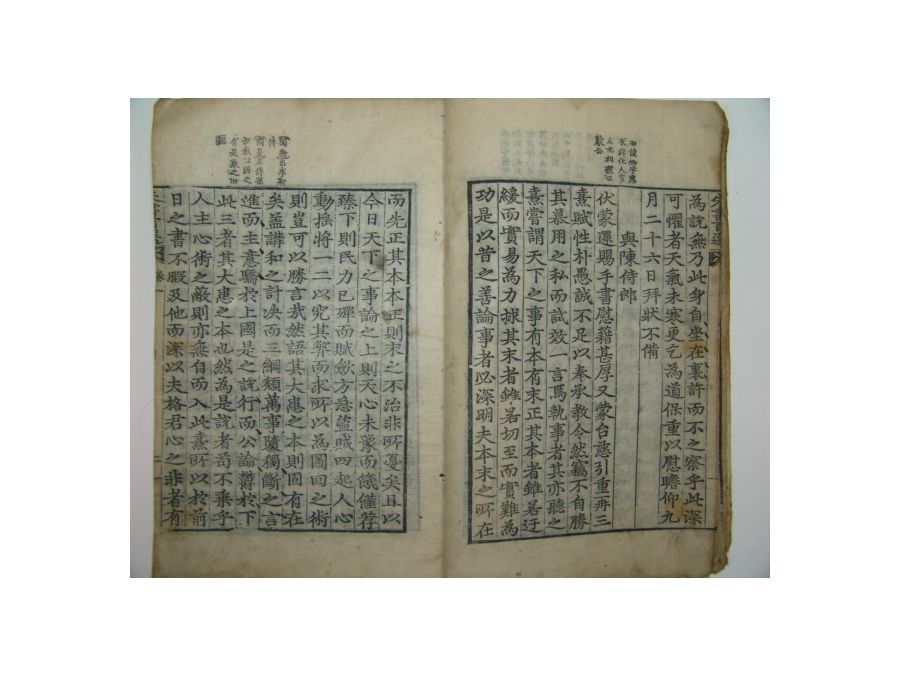 為說無乃此身自坐在裏許而不之察乎此深
可懼者天氣未寒更乞為道保重以慰瞻仰九
月二十六日拜狀不備
與陳侍郎
伏蒙還賜手書慰藉甚厚又蒙台慈引重再三
熹賦性朴愚誠不足以奉承教令然竊不自勝
其慕用之私而試效一言焉執事者其亦聽之
熹嘗謂天下之事有本有末正其本者雖若迂
緩而實易為力捄其末者雖若切至而實難為
功是以昔之善論事者必深明夫本末之所在
而先正其本本正則末之不治非所憂矣且以
今日天下之事論之上則天心未豫而饑饉荐
臻下則民力已殫而賦斂方急盜賊四起人心
動搖將一二以究其弊而求所以為圖回之術
則豈可以勝言哉然語其大患之本則固有在
矣盖講和之計决而三綱頹萬事隳獨斷之言
進而主意驕於上國是之說行而公論欝於下
此三者其大患之本也然為是說者苟不乘乎
人主心術之蔽則亦無自而入此熹所以於前
日之書不暇及他而深以夫格君心之非者有